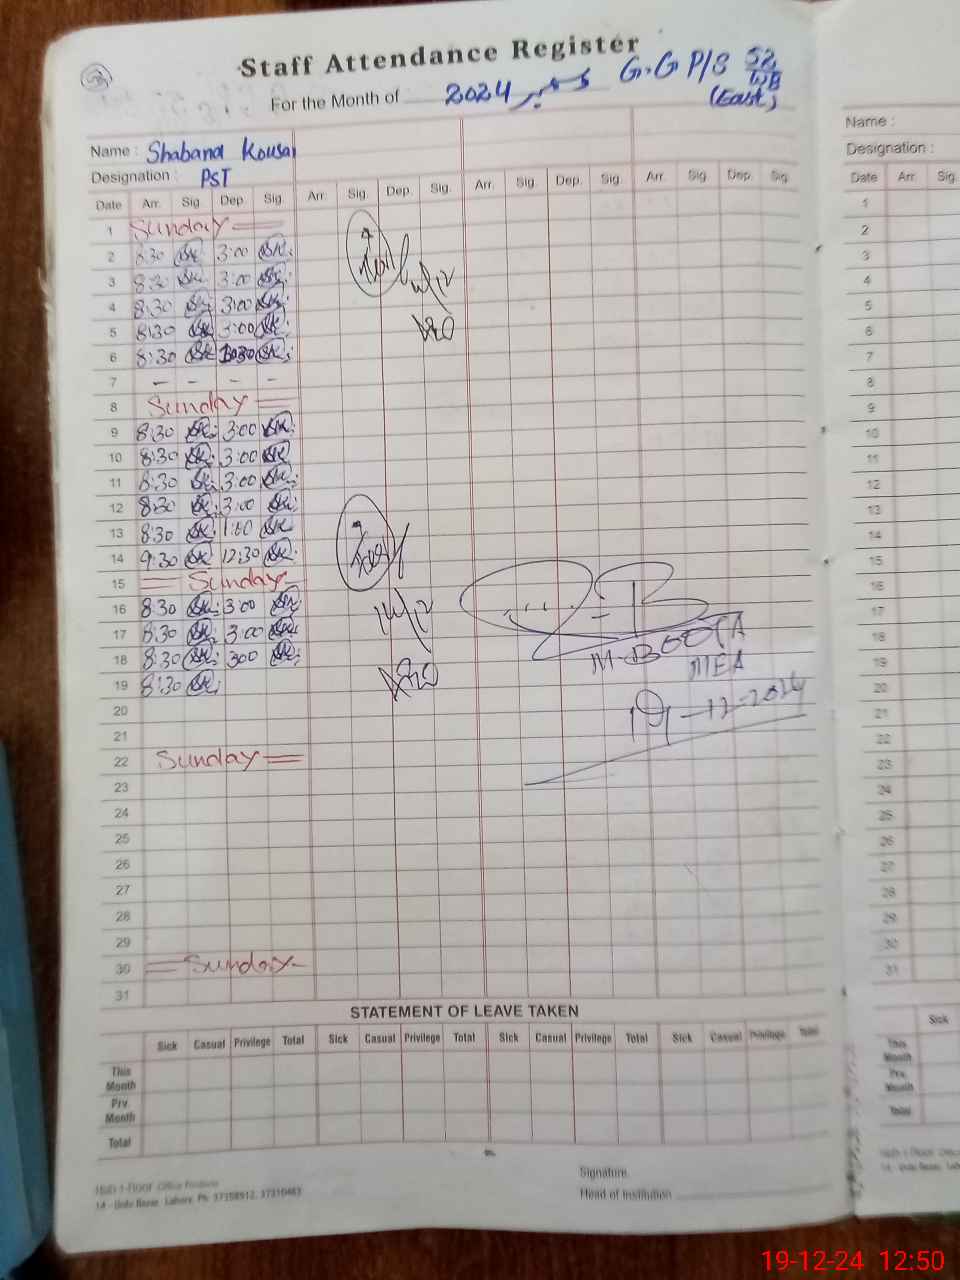 Staff Attendance Register
For the Month of 2024 دسمبر G.G P/S 52/WB
(East)
Name : Shabana Kousar
Designation : PST
Date Arr. Sig Dep Sig. Arr. Sig. Dep. Sig. Arr. Sig. Dep. Sig. Arr. Sig Dep. Sig
1 Sunday
2 8:30 SK 3:00 SK
3 8:30 SK 3:00 SK
4 8:30 SK 3:00 SK
5 8:30 SK 3:00 SK
6 8:30 SK SK
7 - - - -
8 Sunday
9 8:30 SK 3:00 SK
10 8:30 SK 3:00 SK
11 8:30 SK 3:00 SK
12 8:30 SK 3:00 SK
13 8:30 SK 1:00 SK
14 9:30 SK 12:30 SK
15 Sunday
16 8:30 SK 3:00 SK
17 8:30 SK 3:00 SK
18 8:30 SK 300 SK
19 8:30 SK
20
21
22 Sunday
23
24
25
26
27
28
29
30 Sunday
31
14/12
M-BOOTA
MEA
19-12-2024
STATEMENT OF LEAVE TAKEN
Sick Casual Privilege Total Sick Casual Privilege Total Sick Casual Privilege Total Sick Casual Privilege Total
This Month
Prv. Month
Total
14 - Urdu Bazar, Lahore. Ph: 37358912, 37310463
Signature
Head of Institution
Name :
Designation :
Date Arr. Sig.
1
2
3
4
5
6
7
8
9
10
11
12
13
14
15
16
17
18
19
20
21
22
23
24
25
26
27
28
29
30
31
Sick
This Month
Prv. Month
Total
19-12-24 12:50